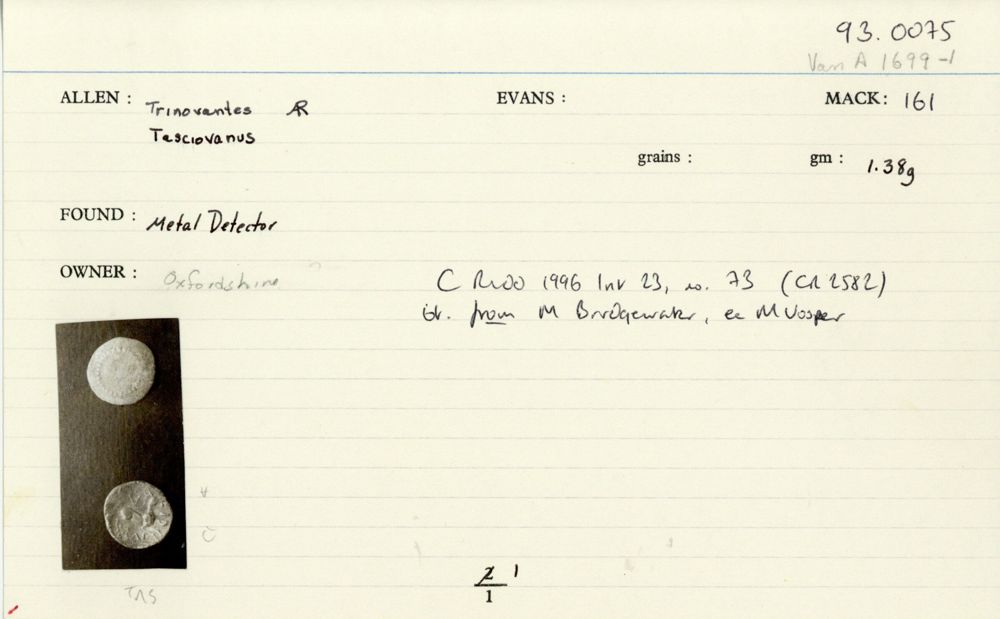 93.0075
Van A 1699-1
ALLEN : Trinovantes AR EVANS : MACK: 161
Tasciovanus
grains : gm : 1.38g
FOUND : Metal Detector
OWNER : Oxfordshire
C Rudd 1996 Inv 23, no. 73 (CR 2582)
from M Bridgewater, M Vosper
TAS
2 1
1